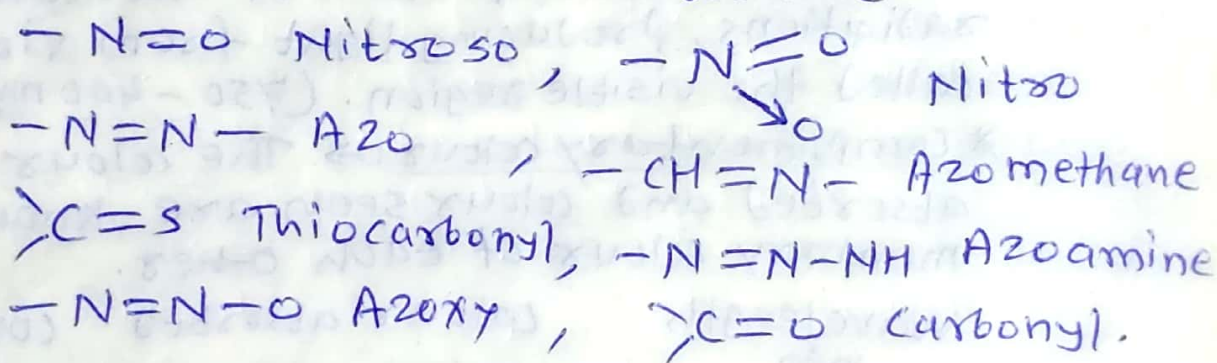 -N=O Nitroso, -N=O
↘O Nitro
-N=N- Azo, -CH=N- Azomethane
>C=S Thiocarbonyl, -N=N-NH Azoamine
-N=N-O Azoxy, >C=O Carbonyl.